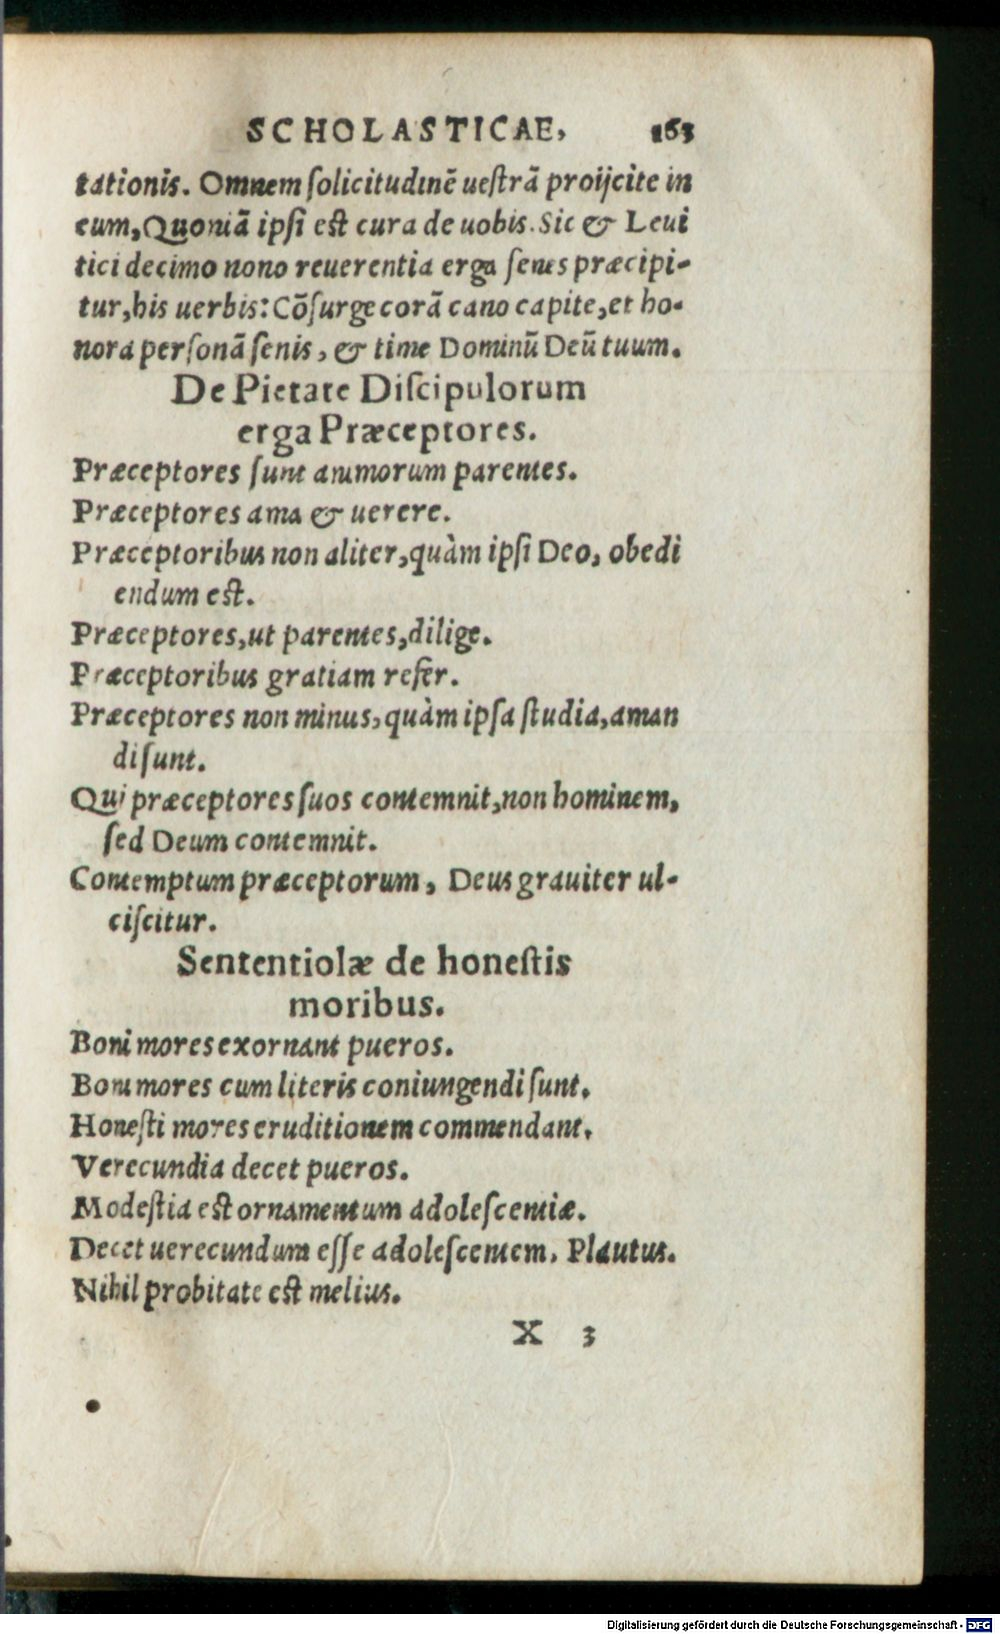 SCHOLASTICAE, 163
tationis. Omnem ſolicitudinē ueſtrā proijcite in
eum, Quoniā ipſi eſt cura de uobis. Sic & Leui
tici decimo nono reuerentia erga ſenes præcipi-
tur, his uerbis: Cōſurge corā cano capite, et ho-
nora perſonā ſenis, & time Dominū Deū tuum.
De Pietate Diſcipulorum
erga Præceptores.
Præceptores ſunt animorum parentes.
Præceptores ama & uerere.
Præceptoribus non aliter, quàm ipſi Deo, obedi
endum eſt.
Præceptores, ut parentes, dilige.
Præceptoribus gratiam refer.
Præceptores non minus, quàm ipſa ſtudia, aman
di ſunt.
Qui præceptores ſuos contemnit, non hominem,
ſed Deum contemnit.
Contemptum præceptorum, Deus grauiter ul-
ciſcitur.
Sententiolæ de honeſtis
moribus.
Boni mores exornant pueros.
Boni mores cum literis coniungendi ſunt.
Honeſti mores eruditionem commendant.
Verecundia decet pueros.
Modeſtia eſt ornamentum adoleſcentiæ.
Decet uerecundum eſſe adoleſcentem. Plautus.
Nihil probitate eſt melius.
X 3
Digitalisierung gefördert durch die Deutsche Forschungsgemeinschaft - DFG